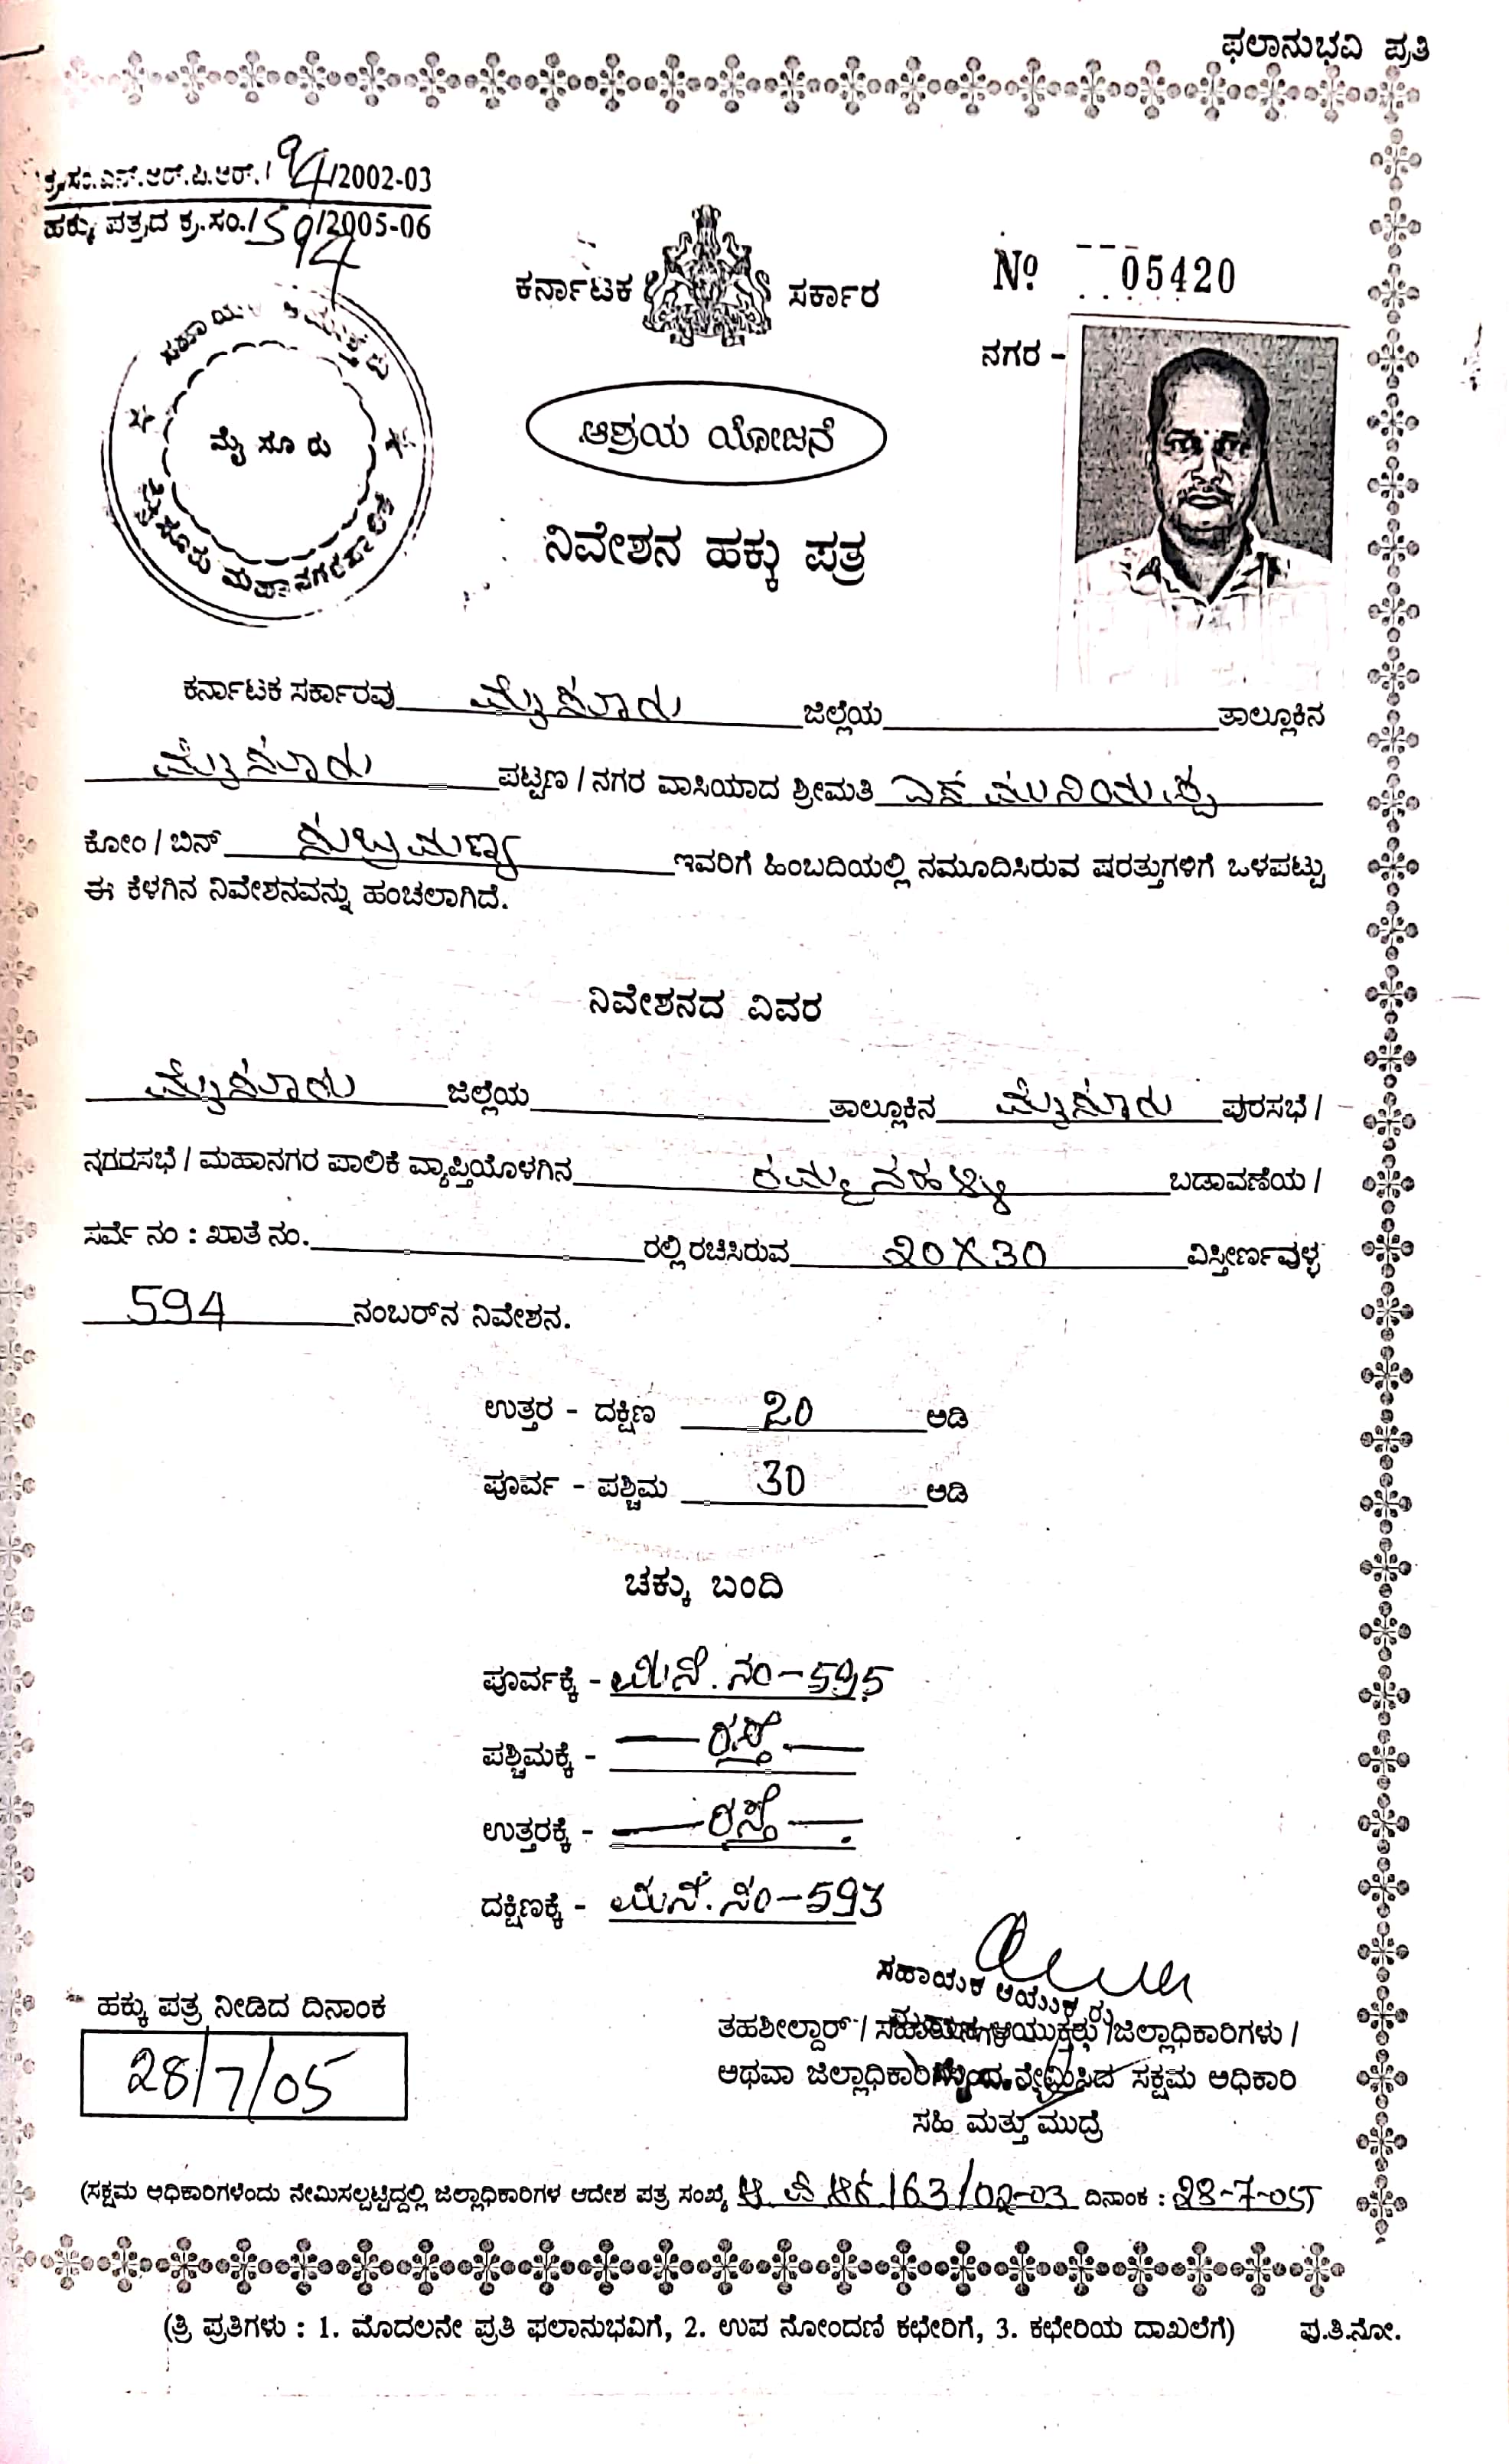 ಫಲಾನುಭವಿ ಪ್ರತಿ
ಕ್ರ.ಸಂ.ಎನ್.ಆರ್.ಪಿ.ಆರ್./94/2002-03
ಹಕ್ಕು ಪತ್ರದ ಕ್ರ.ಸಂ./594/2005-06
ಕರ್ನಾಟಕ ಸರ್ಕಾರ
Nº 05420
ನಗರ -
ಸಹಾಯಕ ಆಯುಕ್ತರು
ಮೈಸೂರು
ಮೈಸೂರು ಮಹಾನಗರಪಾಲಿಕೆ
ಆಶ್ರಯ ಯೋಜನೆ
ನಿವೇಶನ ಹಕ್ಕು ಪತ್ರ
ಕರ್ನಾಟಕ ಸರ್ಕಾರವು ಮೈಸೂರು ಜಿಲ್ಲೆಯ ತಾಲ್ಲೂಕಿನ
ಮೈಸೂರು ಪಟ್ಟಣ / ನಗರ ವಾಸಿಯಾದ ಶ್ರೀಮತಿ ಎಸ್ ಮುನಿಯಪ್ಪ
ಕೋಂ / ಬಿನ್ ಸುಬ್ರಮಣ್ಯ ಇವರಿಗೆ ಹಿಂಬದಿಯಲ್ಲಿ ನಮೂದಿಸಿರುವ ಷರತ್ತುಗಳಿಗೆ ಒಳಪಟ್ಟು
ಈ ಕೆಳಗಿನ ನಿವೇಶನವನ್ನು ಹಂಚಲಾಗಿದೆ.
ನಿವೇಶನದ ವಿವರ
ಮೈಸೂರು ಜಿಲ್ಲೆಯ ತಾಲ್ಲೂಕಿನ ಮೈಸೂರು ಪುರಸಭೆ /
ನಗರಸಭೆ / ಮಹಾನಗರ ಪಾಲಿಕೆ ವ್ಯಾಪ್ತಿಯೊಳಗಿನ ರಮ್ಮನಹಳ್ಳಿ ಬಡಾವಣೆಯ /
ಸರ್ವೆ ನಂ : ಖಾತೆ ನಂ. ರಲ್ಲಿ ರಚಿಸಿರುವ 20X30 ವಿಸ್ತೀರ್ಣವುಳ್ಳ
594 ನಂಬರ್‌ನ ನಿವೇಶನ.
ಉತ್ತರ - ದಕ್ಷಿಣ 20 ಅಡಿ
ಪೂರ್ವ - ಪಶ್ಚಿಮ 30 ಅಡಿ
ಚಕ್ಕು ಬಂದಿ
ಪೂರ್ವಕ್ಕೆ - ಮನೆ. ನಂ-595
ಪಶ್ಚಿಮಕ್ಕೆ - ರಸ್ತೆ
ಉತ್ತರಕ್ಕೆ - ರಸ್ತೆ
ದಕ್ಷಿಣಕ್ಕೆ - ಮನೆ. ನಂ-593
ಸಹಾಯಕ ಆಯುಕ್ತರು
ಹಕ್ಕು ಪತ್ರ ನೀಡಿದ ದಿನಾಂಕ
28/7/05
ತಹಶೀಲ್ದಾರ್ / ಸಹಾಯಕ ಆಯುಕ್ತರು / ಜಿಲ್ಲಾಧಿಕಾರಿಗಳು /
ಅಥವಾ ಜಿಲ್ಲಾಧಿಕಾರಿಗಳಿಂದ ನೇಮಿಸಿದ ಸಕ್ಷಮ ಅಧಿಕಾರಿ
ಸಹಿ ಮತ್ತು ಮುದ್ರೆ
(ಸಕ್ಷಮ ಅಧಿಕಾರಿಗಳೆಂದು ನೇಮಿಸಲ್ಪಟ್ಟಿದ್ದಲ್ಲಿ ಜಿಲ್ಲಾಧಿಕಾರಿಗಳ ಆದೇಶ ಪತ್ರ ಸಂಖ್ಯೆ 163/02-03 ದಿನಾಂಕ : 28-7-05)
(ತ್ರಿ ಪ್ರತಿಗಳು : 1. ಮೊದಲನೇ ಪ್ರತಿ ಫಲಾನುಭವಿಗೆ, 2. ಉಪ ನೋಂದಣಿ ಕಛೇರಿಗೆ, 3. ಕಛೇರಿಯ ದಾಖಲೆಗೆ) ಪು.ತಿ.ನೋ.